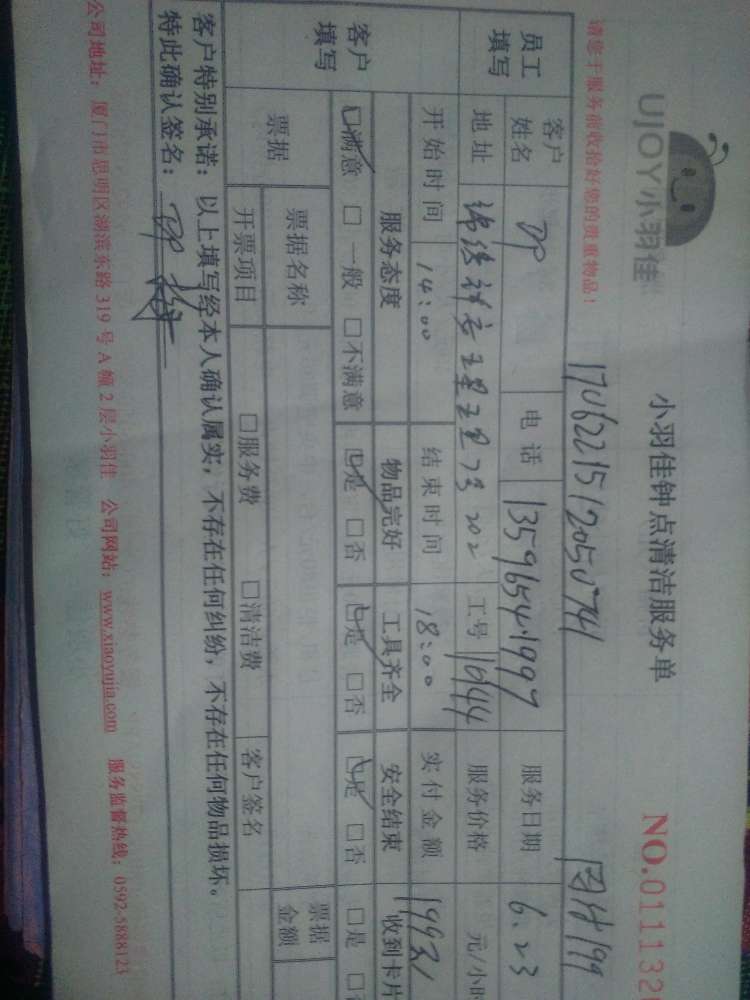 UJOY小羽佳
小羽佳钟点清洁服务单
NO.011132
请您于服务前收拾好您的贵重物品!
1706221512050741
员工填写
客户姓名
电话
13596541997
服务日期
6.23
地址
202
工号
16144
服务价格
元/小时
开始时间
14:00
结束时间
18:00
实付金额
客户填写
服务态度
物品完好
工具齐全
安全结束
收到卡片
满意 一般 不满意
是 否
是 否
是 否
是 否
票据
票据名称
票据金额
开票项目
服务费 清洁费
客户签名
客户特别承诺:以上填写经本人确认属实,不存在任何纠纷,不存在任何物品损坏。
特此确认签名:
公司地址:厦门市思明区湖滨东路319号A幢2层小羽佳 公司网站:www.xiaoyujia.com 服务监督热线:0592-5888123